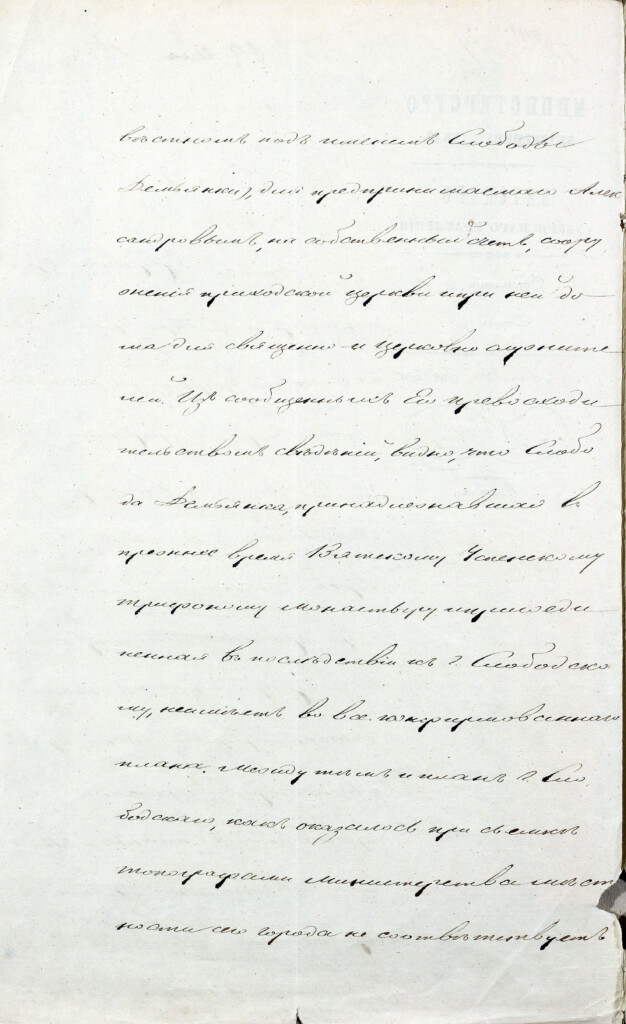 вѣстномъ подъ именемъ Слободы
Демьянки), для предпринимаемаго Алек
сандровымъ, на собственный счетъ, соору
женія приходской церкви и при ней до
ма для священно- и церковно служите
лей. Изъ сообщенныхъ Его превосходи
тельствомъ свѣдѣній, видно, что Слобо
да Демьянка, принадлежавшая въ
прежнее время Вятскому Успенскому
Трифонову монастырю и присоеди
ненная въ послѣдствіи къ г. Слободско
му, неимѣетъ во все конфирмованнаго
плана. Между тѣмъ и планъ г. Сло
бодскаго, какъ оказалось при съемкѣ
топографами Министерства мѣст
ности сего города не соотвѣтствуетъ